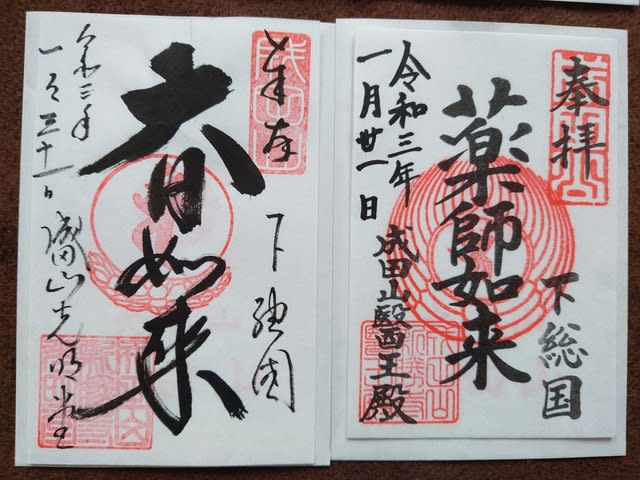 奉拝
下総国
薬師如来
令和三年
一月廿一日
成田山醫王殿
奉拝
下総国
大日如来
令和三年
成田山光明堂